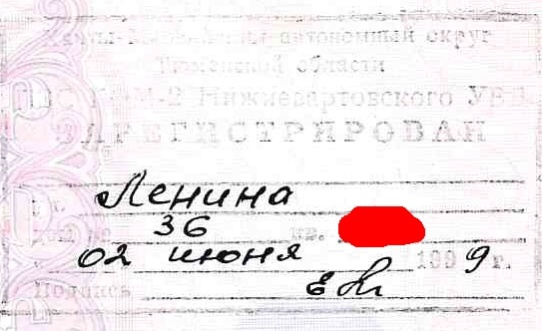 Ханты-Мансийский автономный округ
Тюменской области
ПВС ГОМ-2 Нижневартовского УВД
ЗАРЕГИСТРИРОВАН
ул. Ленина
дом № 36 кв.
02 июня 1999 г.
Подпись